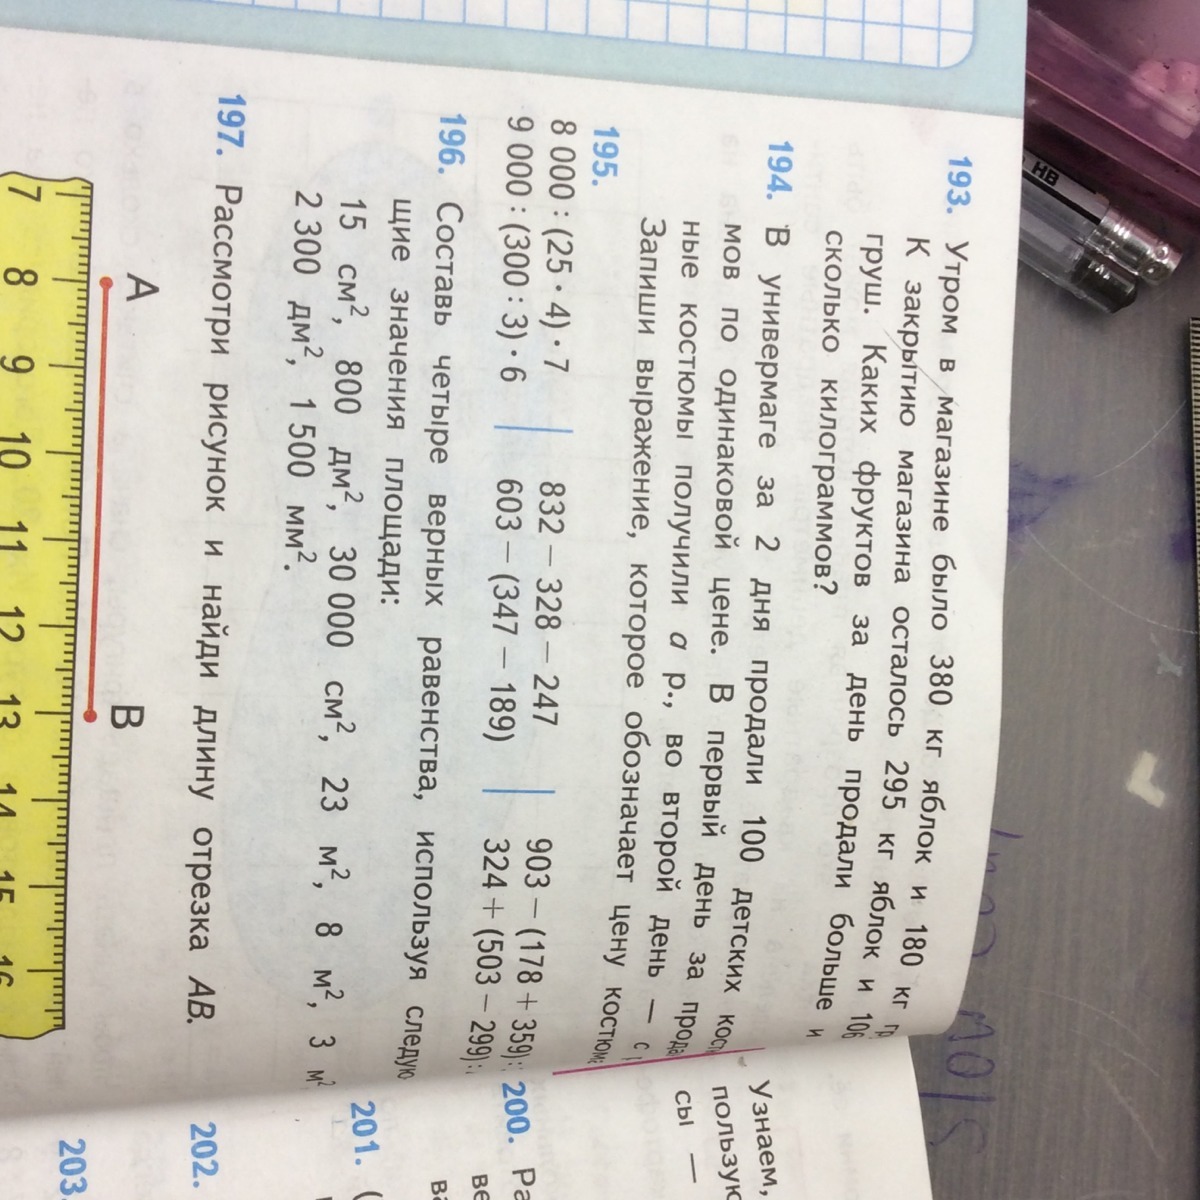 193. Утром в магазине было 380 кг яблок и 180 кг
К закрытию магазина осталось 295 кг яблок и 106
груш. Каких фруктов за день продали больше и
сколько килограммов?
194. В универмаге за 2 дня продали 100 детских кос
мов по одинаковой цене. В первый день за прода
ные костюмы получили а р., во второй день — с
Запиши выражение, которое обозначает цену костюма
195.
8 000 : (25 · 4) · 7 832 − 328 − 247 903 − (178 + 359) :
9 000 : (300 : 3) · 6 603 − (347 − 189) 324 + (503 − 299) :
196. Составь четыре верных равенства, используя следую
щие значения площади:
15 см², 800 дм², 30 000 см², 23 м², 8 м², 3 м²
2 300 дм², 1 500 мм².
197. Рассмотри рисунок и найди длину отрезка AB.
A B
7 8 9 10 11 12 13 14 15 16
Узнаем,
пользую
сы —
200. Ра
ве
201. (
ва
202.
203.
HB